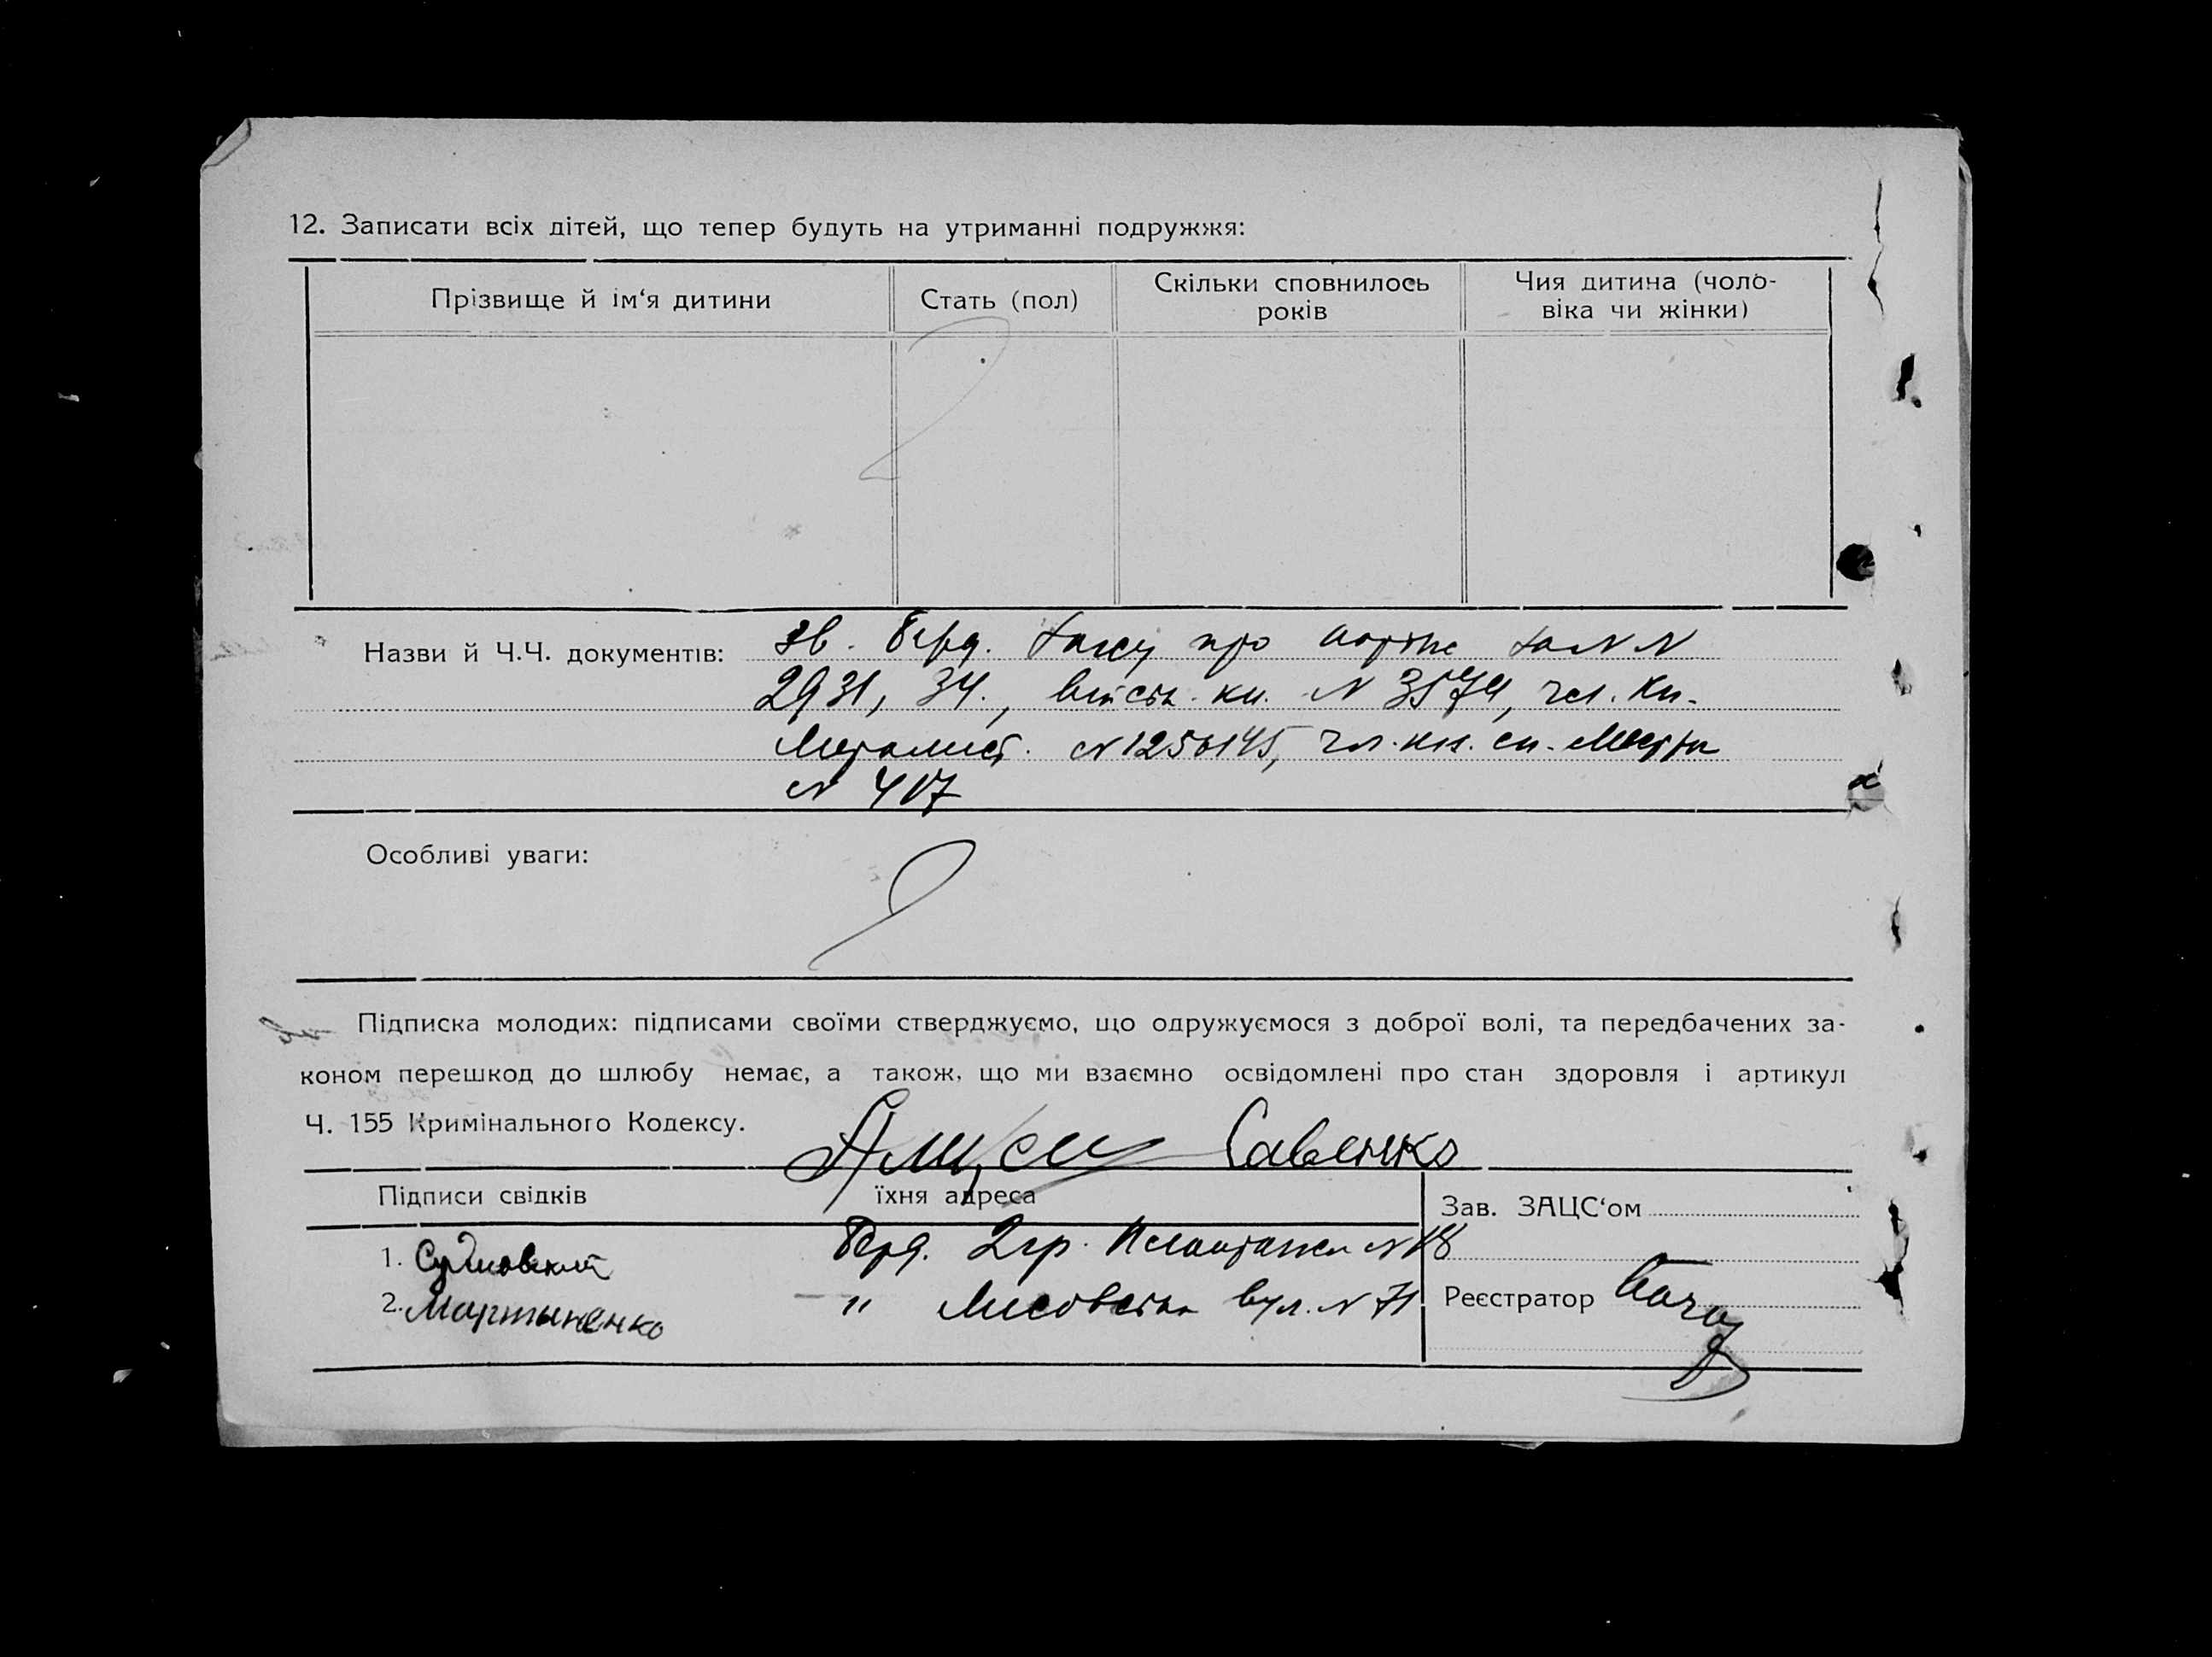 12. Записати всіх дітей, що тепер будуть на утриманні подружжя:
Прізвище й ім‘я дитини
Стать (пол)
Скільки сповнилось
років
Чия дитина (чоло-
віка чи жінки)
Назви й Ч.Ч. документів: зв. Берд. про N N
2931, 34., військ. кн. N 3574, чл. кн.
Металіст. N 1256145, чл. кн. сп.
N 417
Особливі уваги:
Підписка молодих: підписами своїми стверджуємо, що одружуємося з доброї волі, та передбачених за-
коном перешкод до шлюбу немає, а також, що ми взаємно освідомлені про стан здоровля і артикул
Ч. 155 Кримінального Кодексу.
Савенко
Підписи свідків
їхня адреса
Зав. ЗАЦС‘ом
1. Берд. 2гр. N 18
2. Мартыненко " Лисовська вул. N 71
Реєстратор